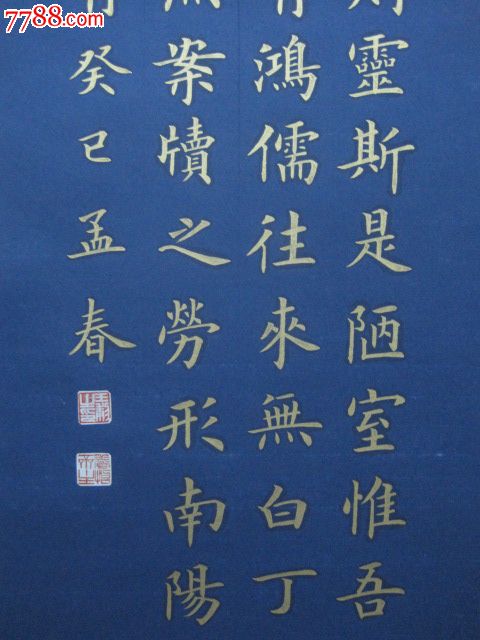 7788.com
靈斯是陋室惟吾
鴻儒往來無白丁
案牘之勞形南陽
癸巳孟春